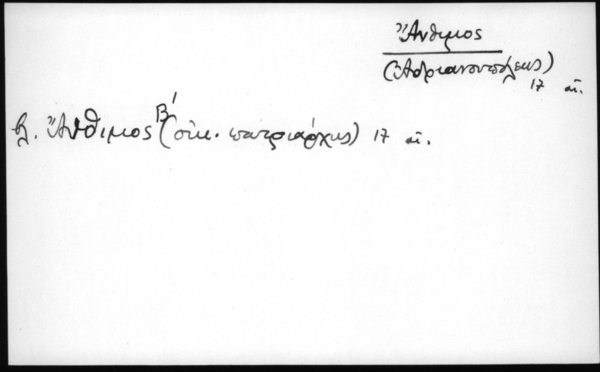 Ἄνθιμος
(Ἀδριανουπόλεως)
17 αἰ.
βλ. Ἄνθιμος Β΄ (οἰκ. πατριάρχης) 17 αἰ.